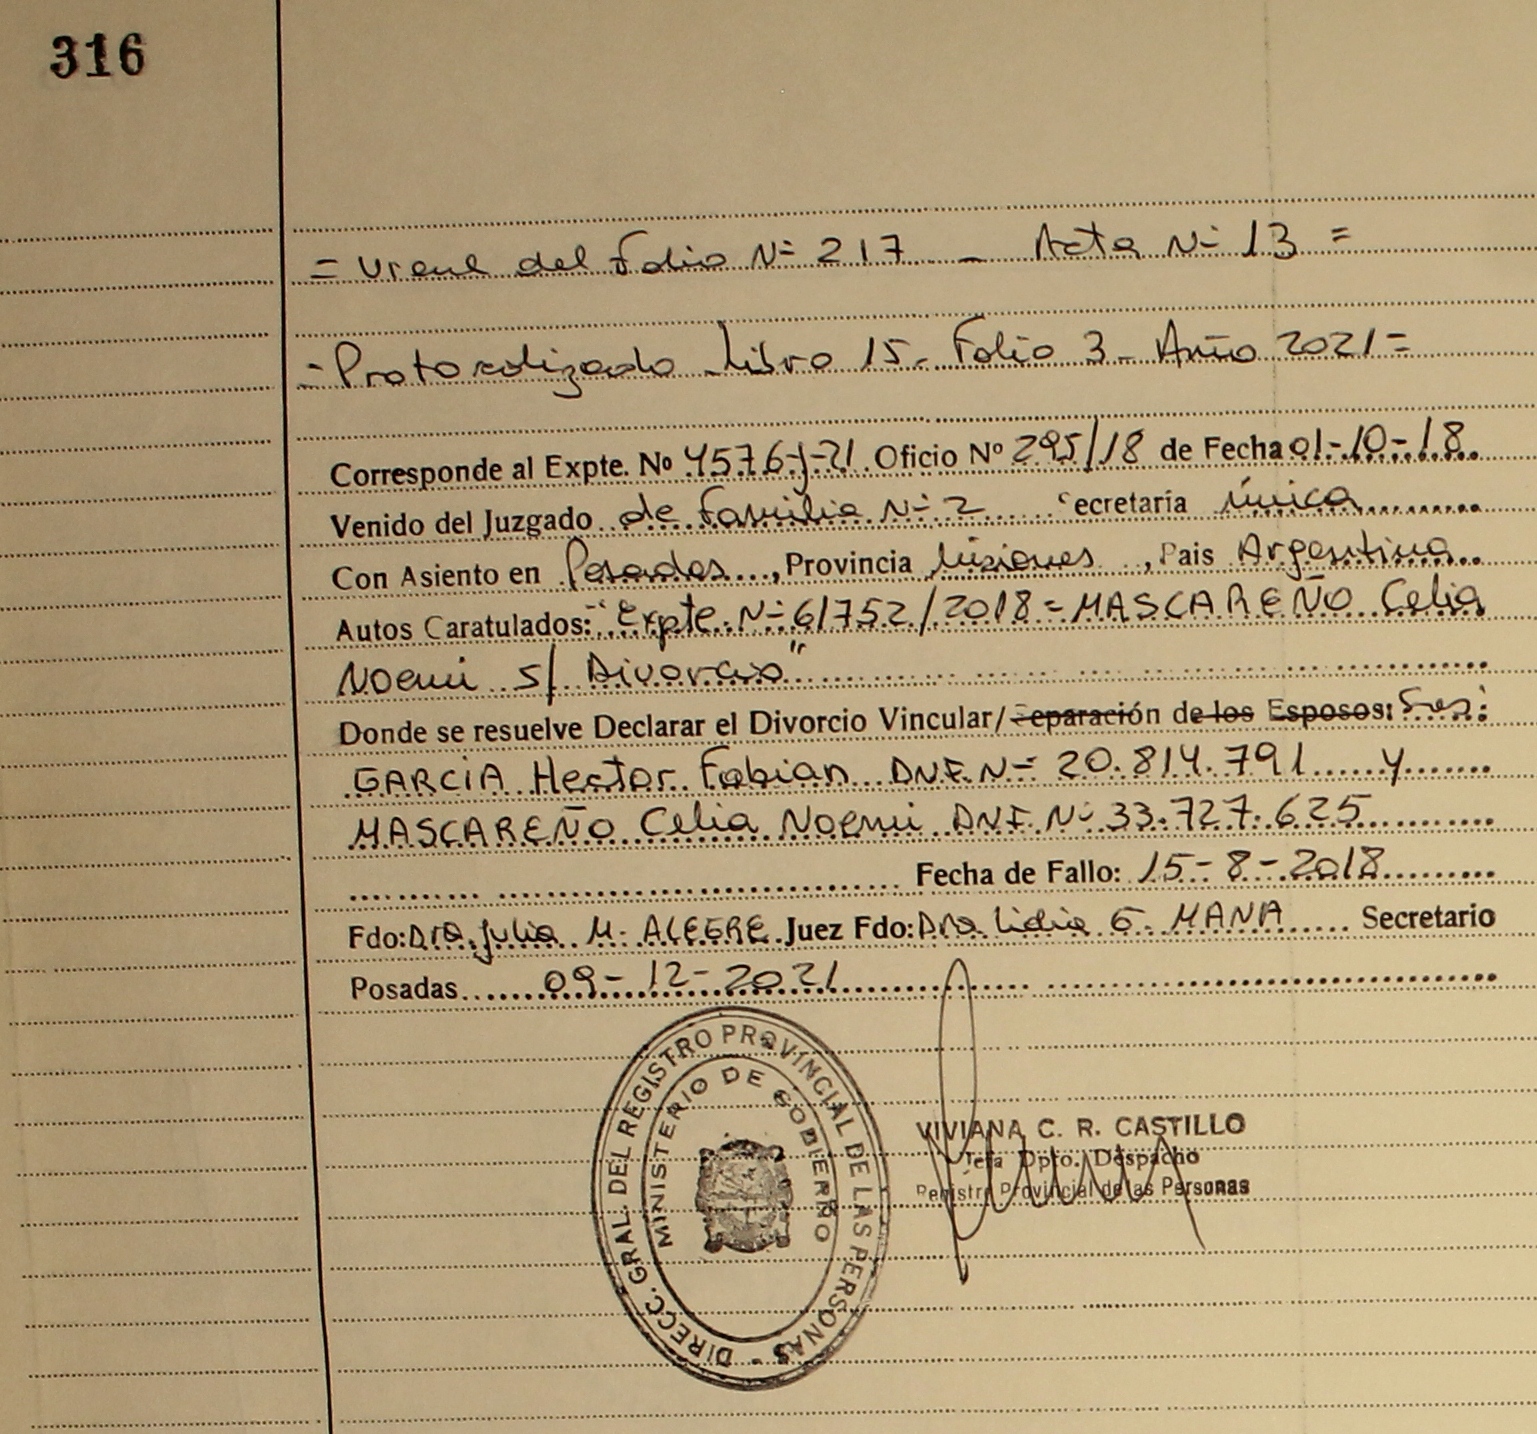 316
= Viene del Folio Nº 217 - Acta Nº 13 =
- Protocolizado Libro 15 - Folio 3 - Año 2021 =
Corresponde al Expte. Nº 4576-J-21 Oficio Nº 295/18 de Fecha 01-10-18
Venido del Juzgado de Familia Nº 2 ecretaría única
Con Asiento en Posadas, Provincia Misiones, Pais Argentina
Autos Caratulados: "Expte. Nº 61752/2018 = MASCAREÑO Celia
Noemi s/ Divorcio"
Donde se resuelve Declarar el Divorcio Vincular/Separación de los Esposos: Sres:
GARCIA Hector Fabian DNI. Nº 20.814.791 y
MASCAREÑO Celia Noemi DNI. Nº 33.727.625
Fecha de Fallo: 15-8-2018
Fdo: Dra. Julia M. ALEGRE Juez Fdo: Dra. Lidia E. MANA Secretario
Posadas 09-12-2021
DIRECC. GRAL. DEL REGISTRO PROVINCIAL DE LAS PERSONAS -
MINISTERIO DE GOBIERNO
VIVIANA C. R. CASTILLO
Jefa Dpto. Despacho
Registro Provincial de las Personas